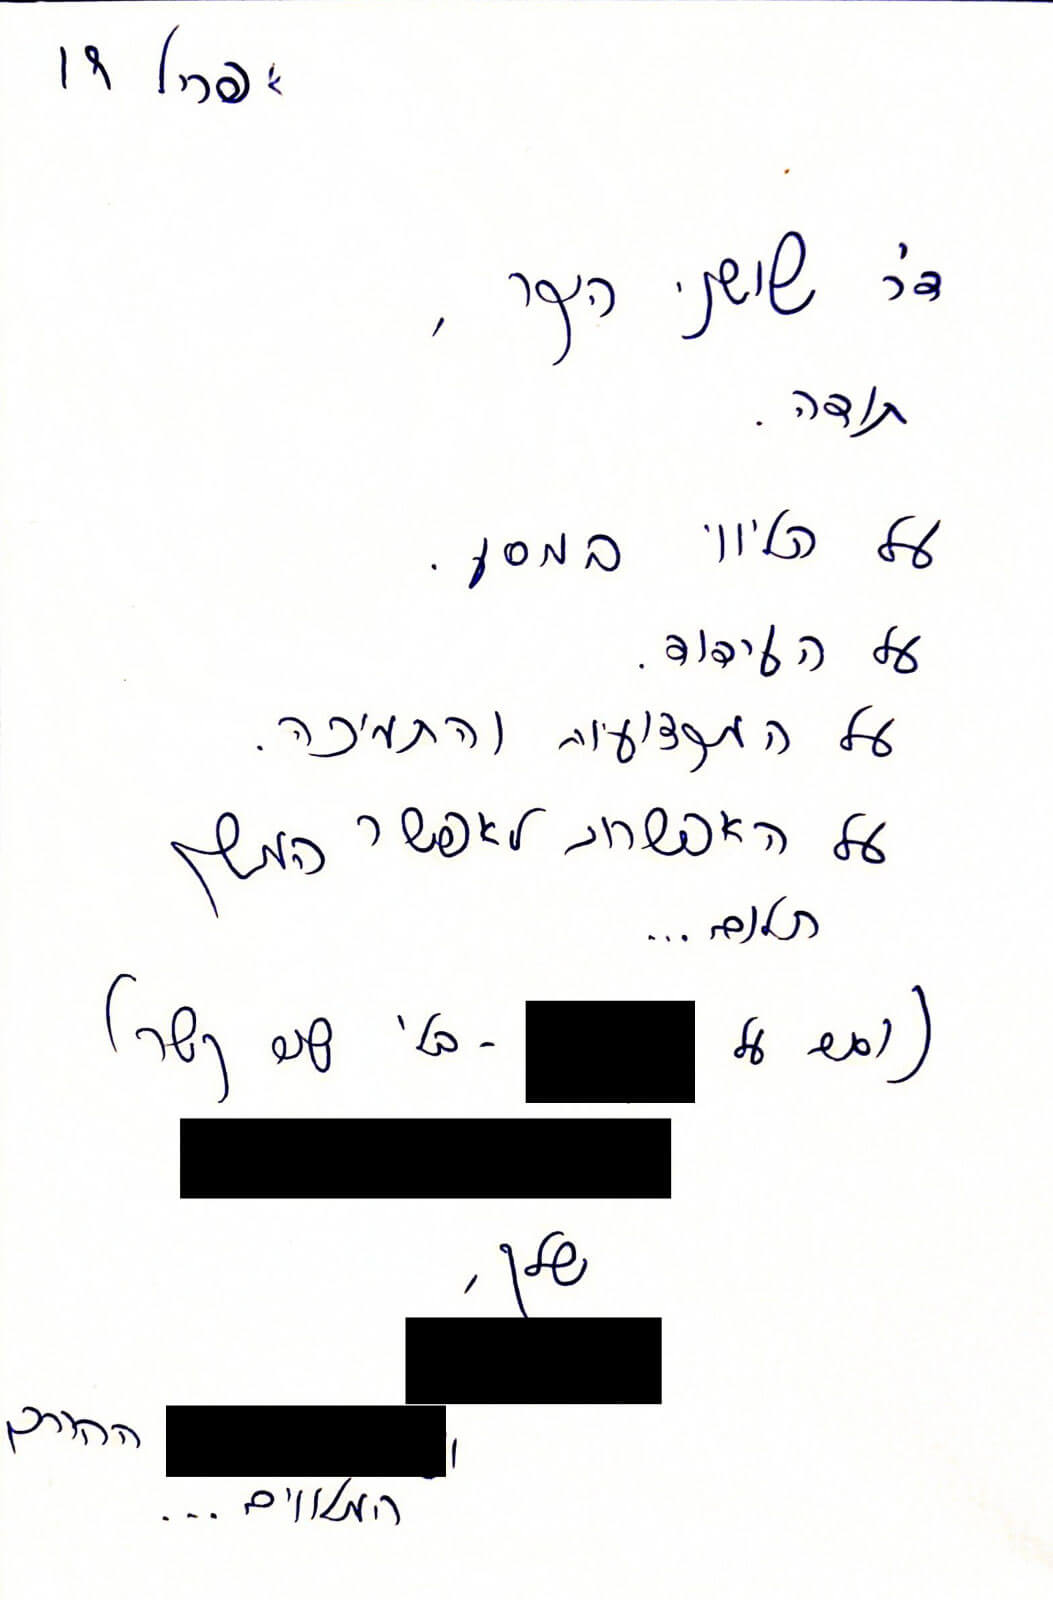 אפריל 19
ד"ר שושני היקר,
תודה.
על הליווי במסע.
על העידוד.
על המקצועיות והתמיכה.
על האפשרות לאפשר המשך
חלום...
(וגם על - בלי שום קשר)
שלך,
ו ההורים
המלווים...